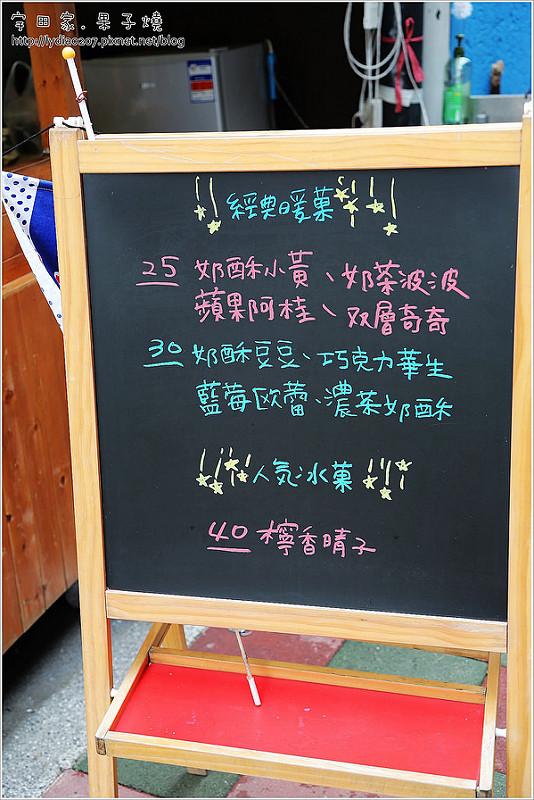 宇田家．果子燒
http://lydia0207.pixnet.net/blog
經典暖菓
25 奶酥小黃、奶茶波波
蘋果阿桂、双層奇奇
30 奶酥豆豆、巧克力華生
藍莓欧蕾、濃茶奶酥
人気冰菓
40 檸香晴子